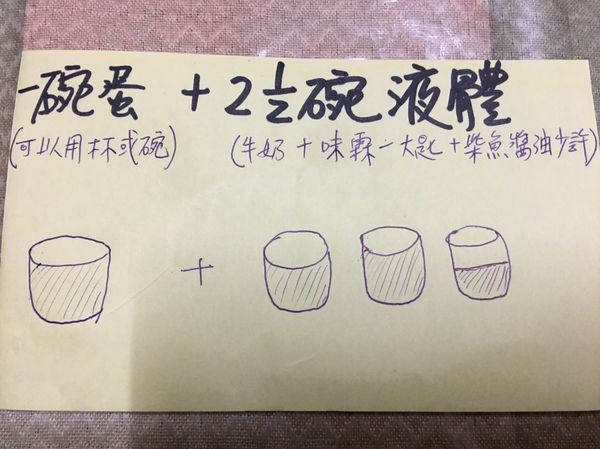 一碗蛋 + 2 1/2碗液體
(可以用杯或碗) (牛奶+味霖一大匙+柴魚醬油少許)
+